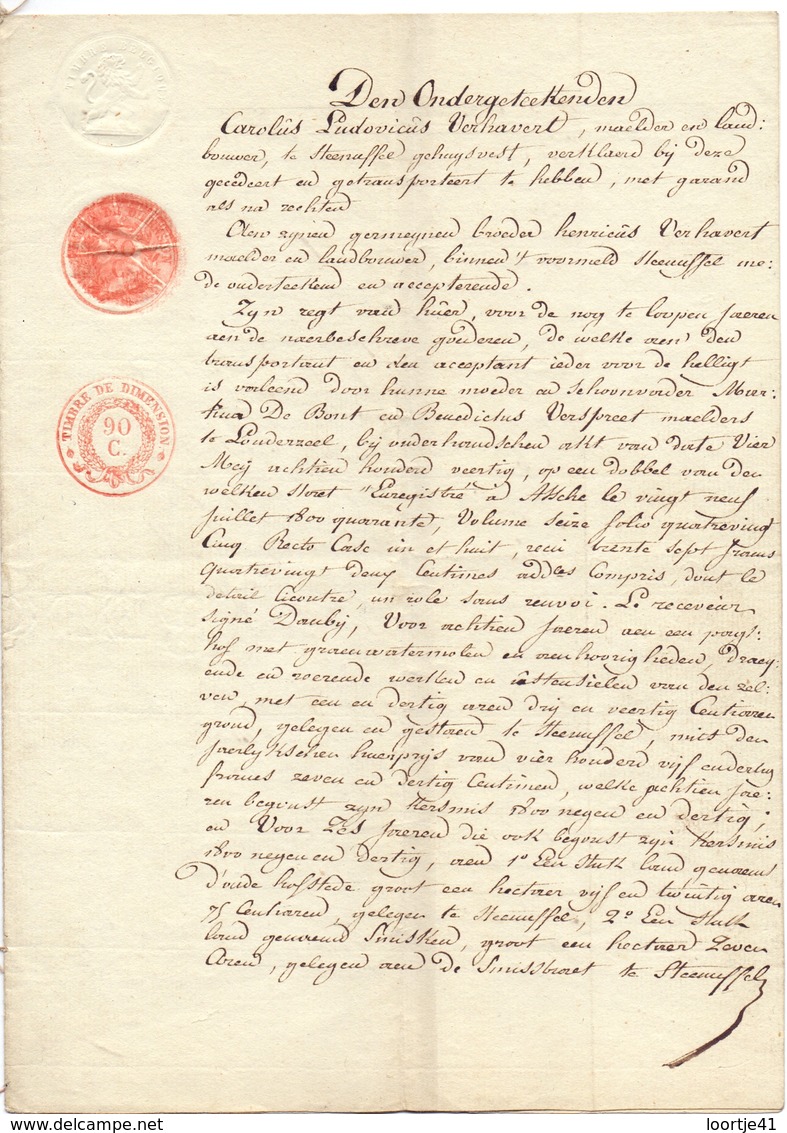 Den Ondergeteekenden
Carolus Ludovicus Verhavert, maelder en land:
bouwer, te Steenuffel gehuysvest, verklaerd bij deze
gecedeert en getransporteert te hebben, met garand
als na rechten
Aen zynen germeynen broeder henricus Verhavert
maelder en landbouwer, binnen 't voormeld Steenuffel me:
de onderteekend en accepterende.
Zyn regt van huer, voor de nog te loopen jaeren
aen de naerbeschreve goederen, de welke aen den
transportant en den acceptant ieder voor de helligt
is verleend door hunne moeder en schoonvader Mar:
tina De Bont en Benedictus Verspreet maelders
te Londerzeel, bij onderhandschen akt van date Vier
Meij achtien honderd veertig, op een dobbel van den
welken staet "Enregistré à Assche le vingt neuf
juillet 1800 quarante, Volume seize folio quatrevingt
Cinq Recto Case un et huit, reçu trente sept francs
quatrevingt deux Centimes add.les Compris, dont le
detail ci contre, un role sans renvoi. Le receveur
signé Dauby, Voor achtien jaeren aen een pagt:
hof met graenwatermolen en aenhoorigheden, draey
ende en roerende werken en ustensielen van den zel:
ven, met een en dertig aren drij en veertig Centiaren
grond, gelegen en gestaen te Steenuffel, mits den
jaerlykschen huerprijs van vier honderd vijf endertig
francs zeven en dertig Centimen, welke achtien jae:
ren begonst zyn kersmis 1800 negen en dertig;
en Voor Zes jaeren die ook begonst zyn kersmis
1800 negen en dertig, aen 1° Een stuk land genaemd
d'oude hofstede groot een hectaer vijf en twintig aren
75 Centiaren, gelegen te Steenuffel, 2° Een stuk
land genaemd Smisken, groot een hectaer zeven
Aren, gelegen aen de Smisstraet te Steenuffel
TIMBRE DE DIMENSION
90
C.
loortje41